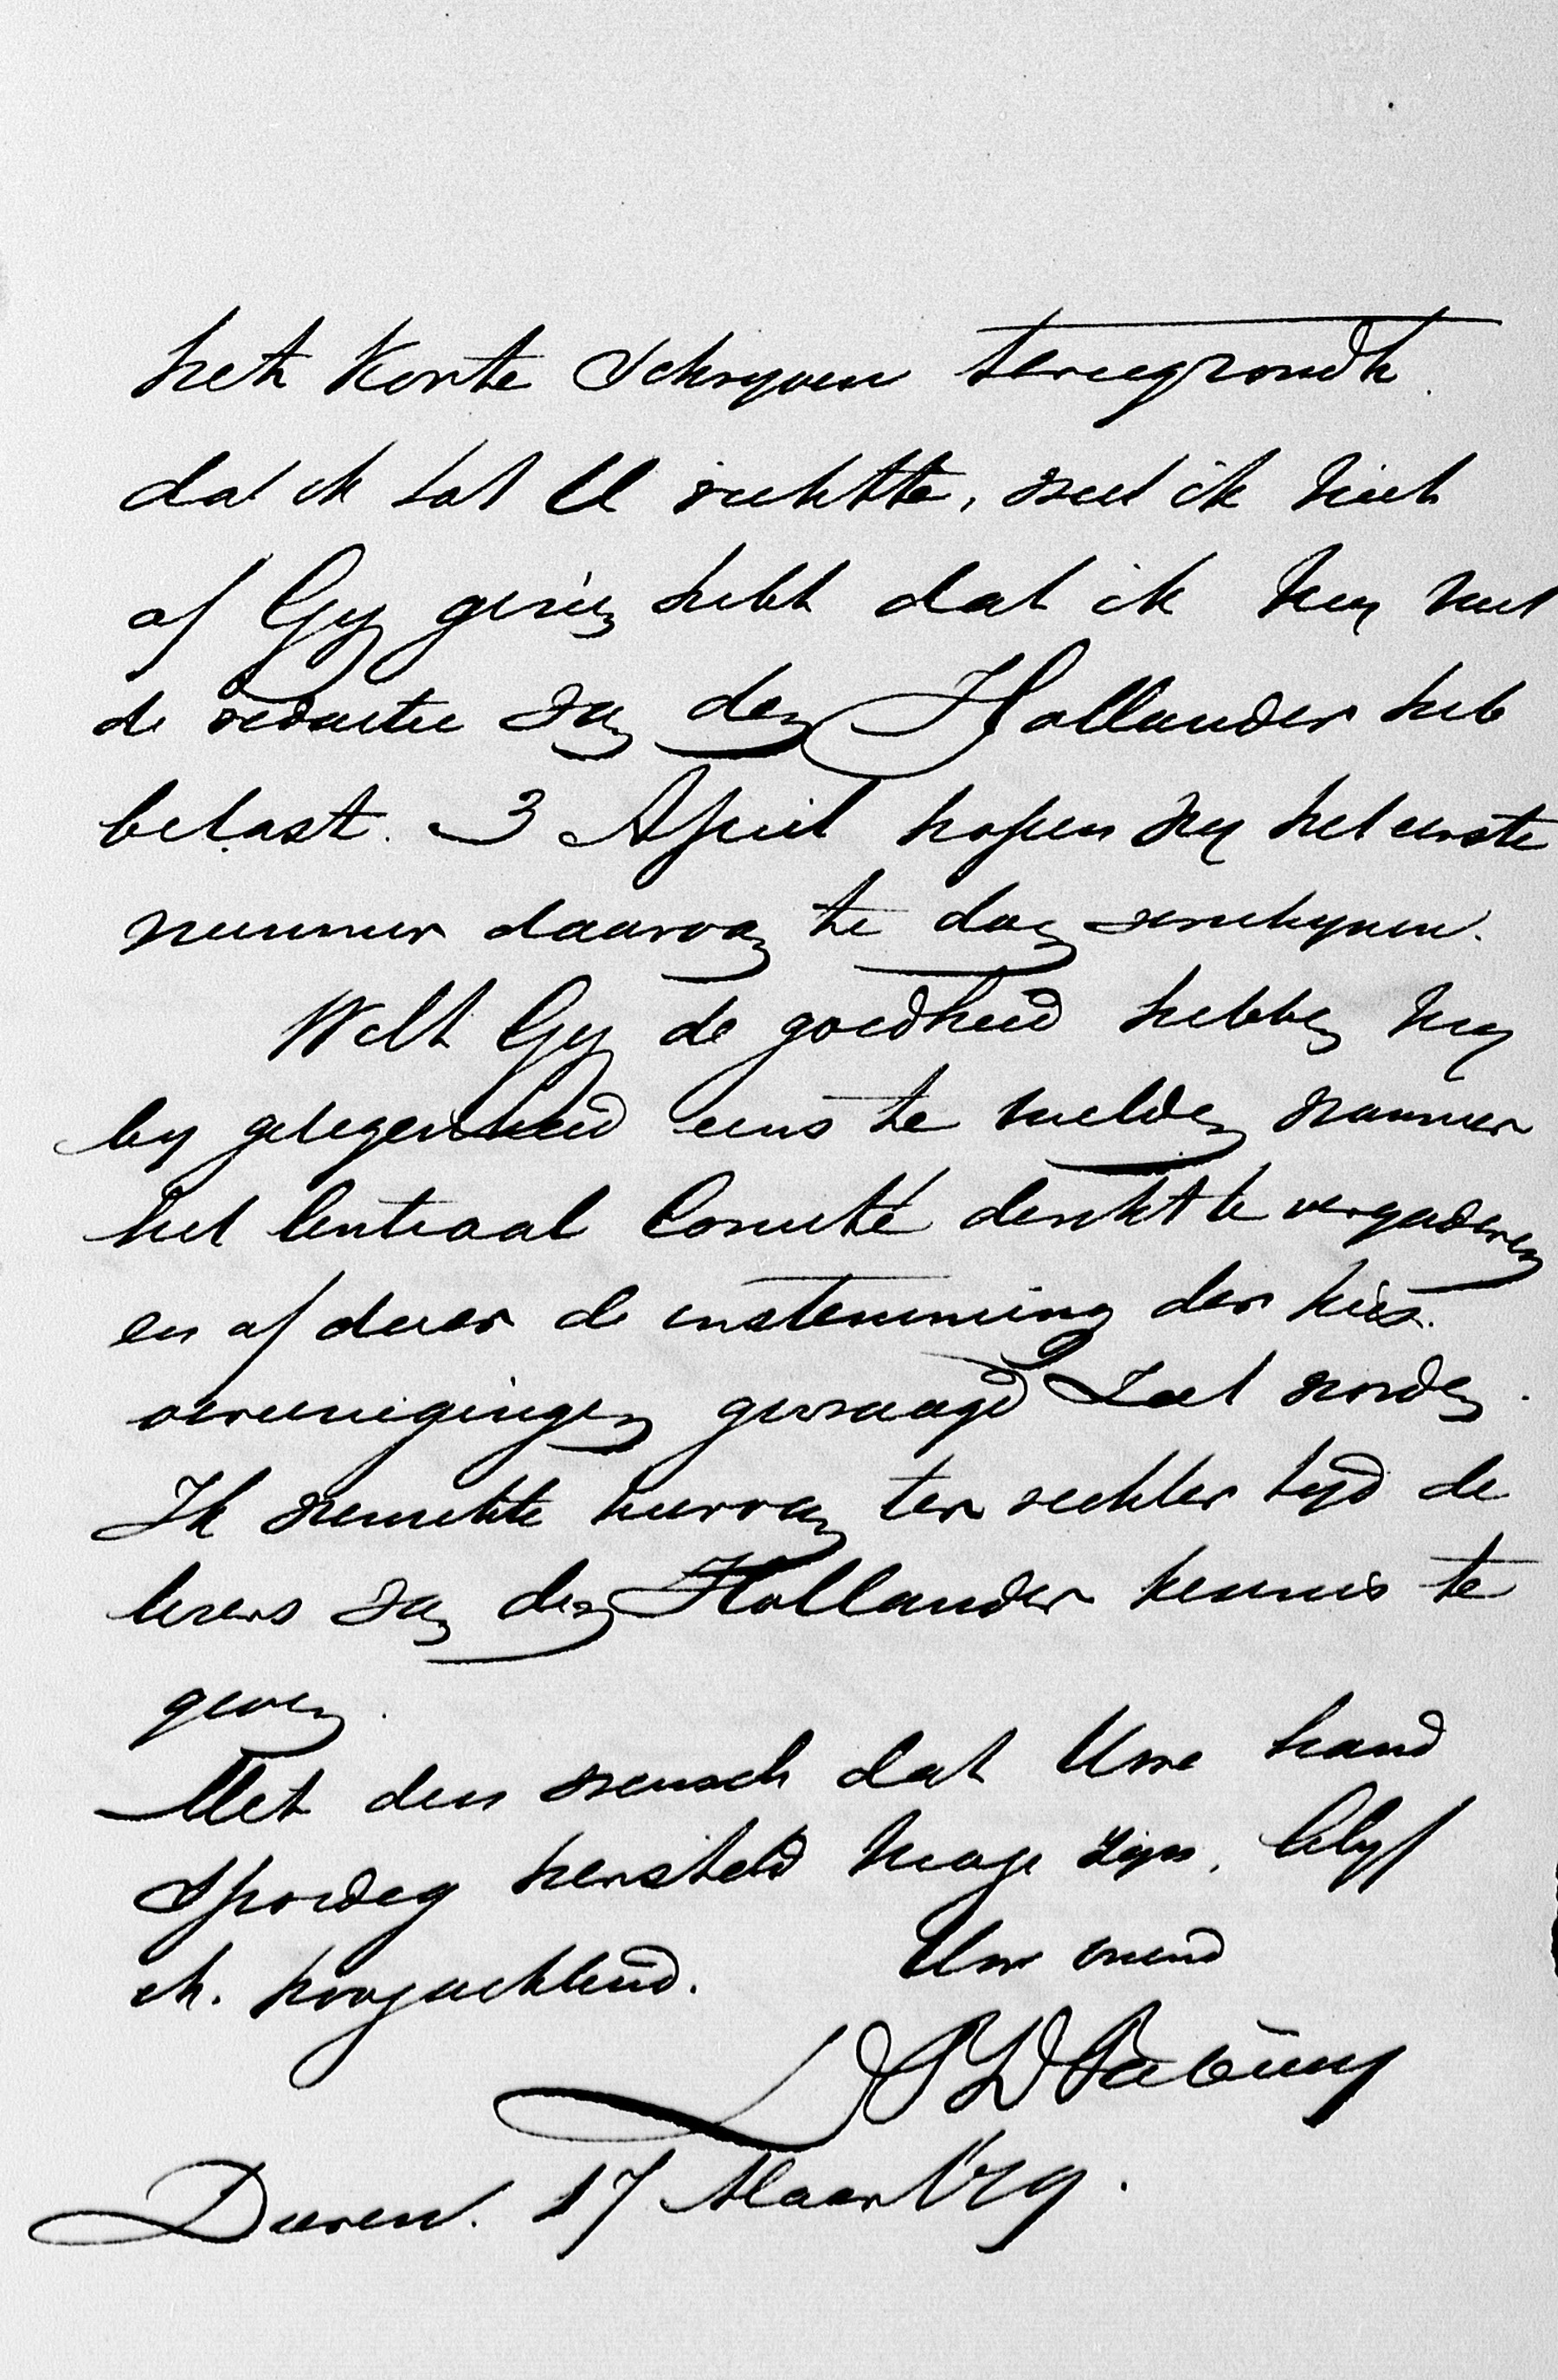 het korte schryven terugvondt
dat ik tot U richtte, weet ik niet
of Gy gezien hebt dat ik my met
de redactie van den Hollander heb
belast. 3 April hopen wy het eerste
nummer daarvan te doen verschynen.
Wilt Gy de goedheid hebben my
by gelegenheid eens te melden wanneer
het Centraal Comité denkt te vergaderen
en of daar de instemming der kies-
vereenigingen gevraagd zal worden.
Ik wenschte hiervan ter rechter tyd de
lezers van den Hollander kennis te
geven.
Met den wensch dat Uwe hand
spoedig hersteld moge zijn, blyf
ik. hoogachtend.
Uw vriend
Dieren. 17 Maart/79.